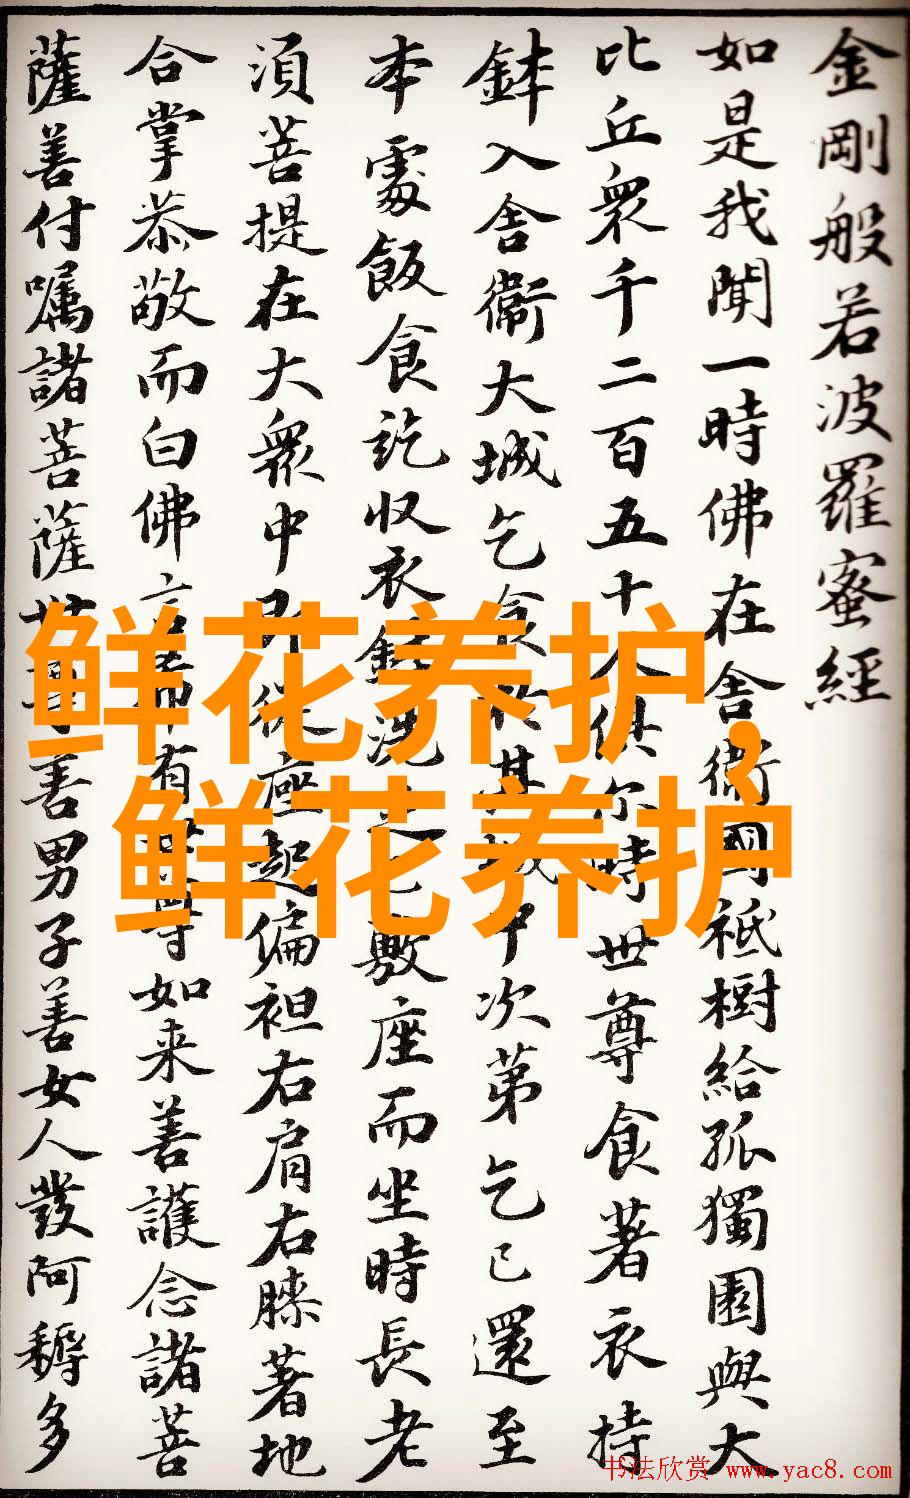 金剛般若波羅蜜經
如是我聞一時佛在舍衛國祇樹給孤獨園與大
比丘衆千二百五十人俱尔時世尊食著衣持
鉢入舍衛大城乞食於其城中次第乞已還至
本處飯食訖収衣鉢洗足已敷座而坐時長老
湏菩提在大衆中即從座起偏袒右肩右膝著地
合掌恭敬而白佛言希有世尊如来善護念諸菩
薩善付嘱諸菩薩世尊善男子善女人發阿耨多
鲜花养护,
鲜花养护
书法欣赏 www.yac8.com